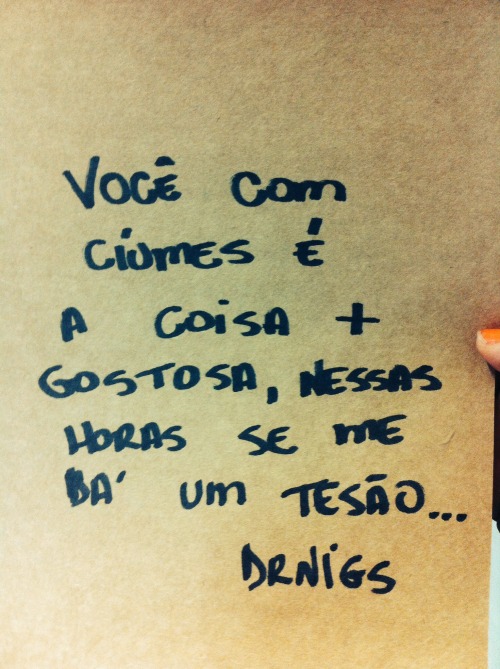 VOCÊ com
CIÚMES É
A COISA +
GOSTOSA, NESSAS
HORAS SE ME
DÁ UM TESÃO...
DRNIGS